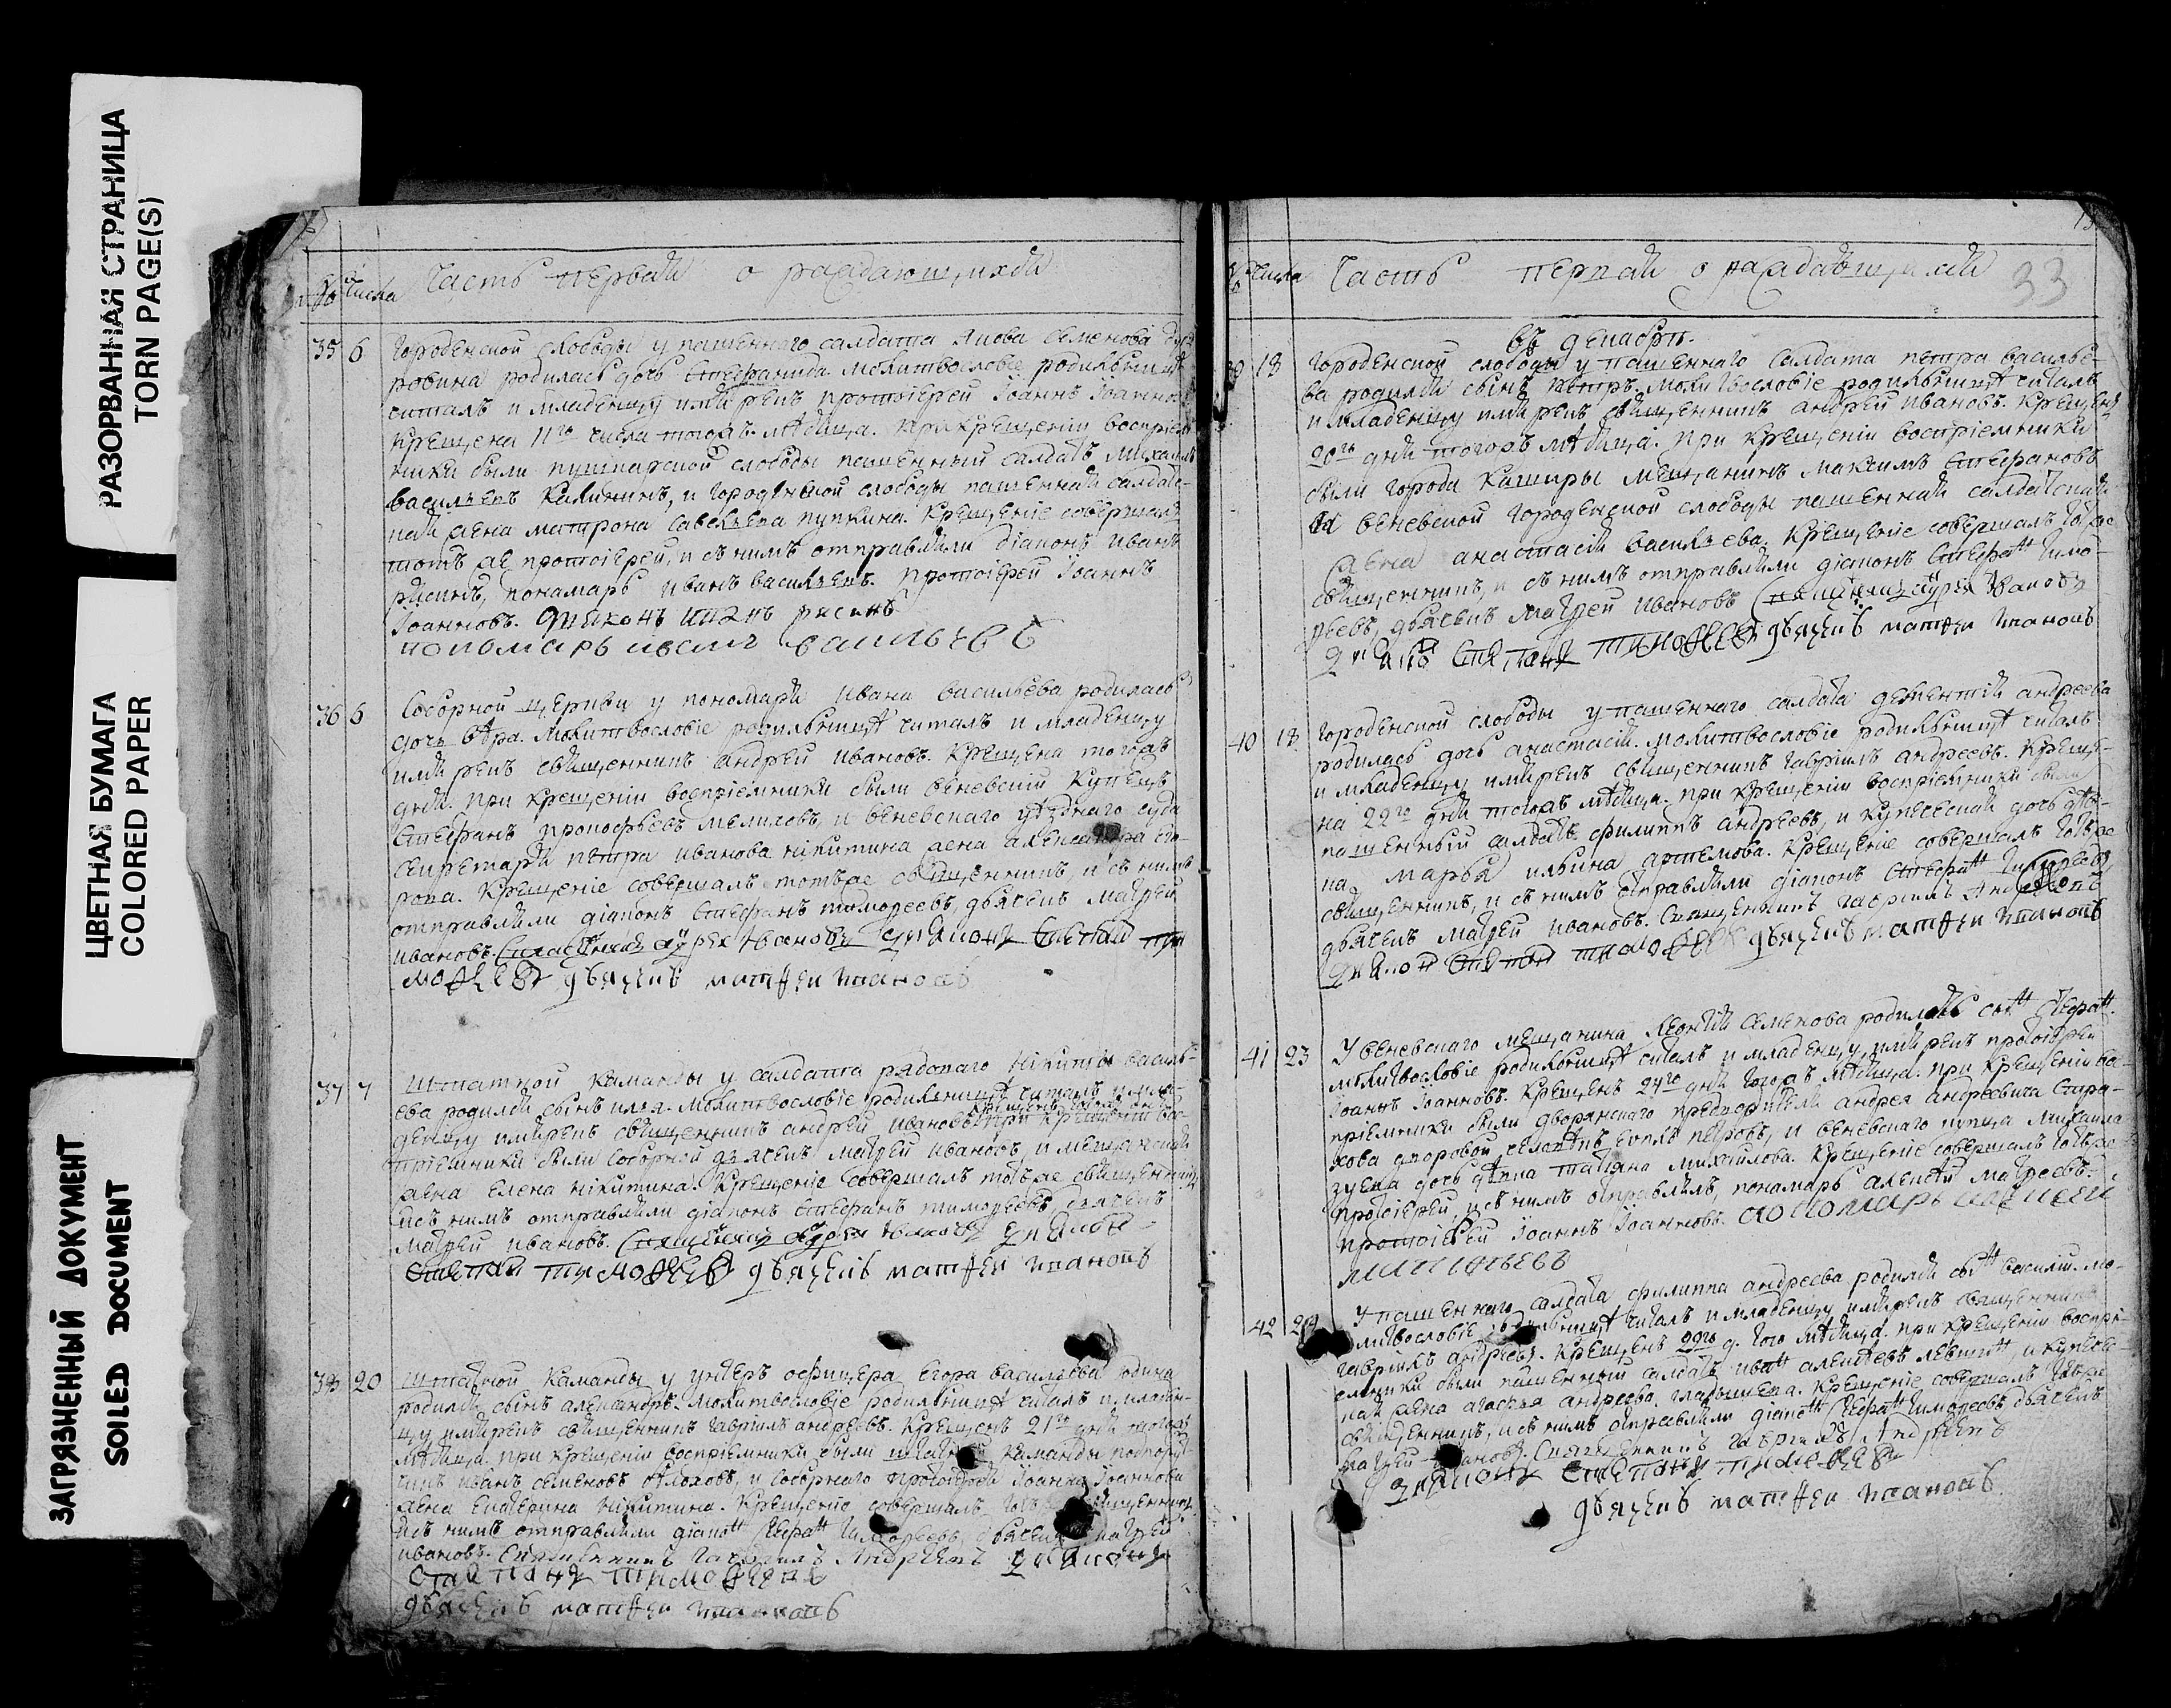 РАЗОРВАННАЯ СТРАНИЦА
TORN PAGE(S)
ЦВЕТНАЯ БУМАГА
COLORED PAPER
ЗАГРЯЗНЕННЫЙ ДОКУМЕНТ
SOILED DOCUMENT
Числа Часть первая о раждающихся
35 6 Городенской слободы у пашеннаго салдата Якова Семенова
родилась дочь Стефанида. Молитвословіе родильницѣ
читалъ и младенцу имя рекъ протоіерей Іоаннъ Іоанновъ
Крещена 11го числа тогожъ мѣсяца. При крещеніи воспріем-
ники были пушкарской слободы пашенный салдатъ Михаилъ
Васильевъ Калининъ, и Городенской слободы пашеннай салдатс-
кая жена Матрона Савельева Пупкина. Крещеніе совершалъ
тотъ же протоіерей, и съ нимъ отправляли діаконъ Иванъ
пономарь Иванъ Васильевъ. Протоіерей Іоаннъ
Іоанновъ. Диаконъ Иванъ
пономарь иванъ васильевъ
36 6 Соборной церкви у пономаря Ивана Васильева родилась
дочь Вѣра. Молитвословіе родильницѣ читалъ и младенцу
имя рекъ священникъ Андрей Ивановъ. Крещена тогожъ
дня. При крещеніи воспріемники были веневскій купецъ
Стефанъ Прокофьевъ и веневскаго уѣзднаго суда
секретаря Петра Иванова Никитина жена Его-
рова. Крещеніе совершалъ тотъже священникъ, и съ нимъ
отправляли діаконъ Стефанъ Тимофеевъ, дьячекъ Матфей
Ивановъ. Священникъ Андрей Ивановъ диаконъ Стефанъ Ти-
мофеевъ дьячекъ матфеи ивановъ
37 7 Штатной каманды у салдата рядоваго Никиты Василь-
ева родился сынъ Илья. Молитвословіе родильницѣ читалъ и мла-
денцу имя рекъ священникъ Андрей Ивановъ при крещеніи вос-
пріемники были соборной дьячекъ Матфей Ивановъ, и мещанская
жена Елена Никитина. Крещеніе совершалъ тотъже священникъ
и съ нимъ отправляли діаконъ Стефанъ Тимофеевъ дьячекъ
Матфей Ивановъ. Священникъ Андрей Ивановъ диаконъ
Стефанъ Тимофеевъ дьячекъ матфеи ивановъ
38 20 Штатной каманды у ундеръ офицера Егора Васильева
родился сынъ Александръ. Молитвословіе родильницѣ читалъ и младен-
цу имя рекъ священникъ Гавріилъ Андреевъ. Крещенъ 21го дня тогожъ
мѣсяца. при крещеніи воспріемники были каманды
Иванъ Семеновъ и соборнаго протоіерея Іоанна Іоаннова
жена Екатерина Никитина. Крещеніе совершалъ священникъ
и съ нимъ отправляли діаконъ Стефанъ Тимофеевъ, дьячекъ Матфей
Ивановъ. Священникъ Гавріилъ Андреевъ диаконъ
Стефанъ Тимофеевъ
дьячекъ матфеи ивановъ
Числа Часть первая о раждающихся 33
въ декабрѣ.
39 18 Городенской слободы у пашеннаго салдата Петра Василье-
ва родился сынъ Петръ. Молитвословіе родильницѣ читалъ
и младенцу имя рекъ священникъ Андрей Ивановъ. Крещенъ
20го дня тогожъ мѣсяца. При крещеніи воспріемники
были города Каширы мещанинъ Максимъ Стефановъ
и веневской Городенской слободы пашенная салдатская
жена Анастасія Васильева. Крещеніе совершалъ тотъже
священникъ, и съ нимъ отправляли діаконъ Стефанъ Тимо-
феевъ, дьячекъ Матфей Ивановъ Священникъ Андрей Ивановъ
диаконъ Стефанъ Тимофеевъ дьячекъ матфеи ивановъ
40 18 Городенской слободы у пашеннаго салдата Дементія Андреева
родилась дочь Анастасія. Молитвословіе родильницѣ читалъ
и младенцу имя рекъ священникъ Гавріилъ Андреевъ. Креще-
на 22го дня тогожъ мѣсяца. при крещеніи воспріемники были
пашенный салдатъ Филиппъ Андреевъ, и купеческая дочь дѣв-
ка Марья Ильина Артемова. Крещеніе совершалъ тотъже
священникъ, и съ нимъ отправляли діаконъ Стефанъ Тимофеевъ
дьячекъ Матфей Ивановъ. Священникъ Гавріилъ Андреевъ
диаконъ Стефанъ Тимофеевъ дьячекъ матфеи ивановъ
41 23 У веневскаго мещанина Леонтія Семенова родился сынъ Стефанъ.
Молитвословіе родильницѣ читалъ и младенцу имя рекъ протоіерей
Іоаннъ Іоанновъ. Крещенъ 24го дня тогожъ мѣсяца. при крещеніи вос-
пріемники были дворянскаго предводителя Андрея Андреевича Стра-
хова дворовой человѣкъ Петровъ, и веневскаго купца Михаила
дочь дѣвка Татьяна Михайлова. Крещеніе совершалъ тотъже
протоіерей, и съ нимъ отправлялъ, пономарь Алексѣй Матвеевъ.
протоіерей Іоаннъ Іоанновъ. пономарь алексеи
матвеевъ
42 24 У пашеннаго салдата Филиппа Андреева родился сынъ Василій. Мо-
литвословіе родильницѣ читалъ и младенцу имя рекъ священникъ
Гавріилъ Андреевъ. Крещенъ 29го д. того мѣсяца. при крещеніи воспрі-
емники были пашенный салдатъ Иванъ Алексѣевъ и купечес-
кая жена Агафья Андреева. Крещеніе совершалъ тотъже
священникъ, и съ нимъ отправляли діаконъ Стефанъ Тимофеевъ дьячекъ
Матфей Ивановъ. Священникъ Гавріилъ Андреевъ
диаконъ Стефанъ Тимофеевъ
дьячекъ матфеи ивановъ